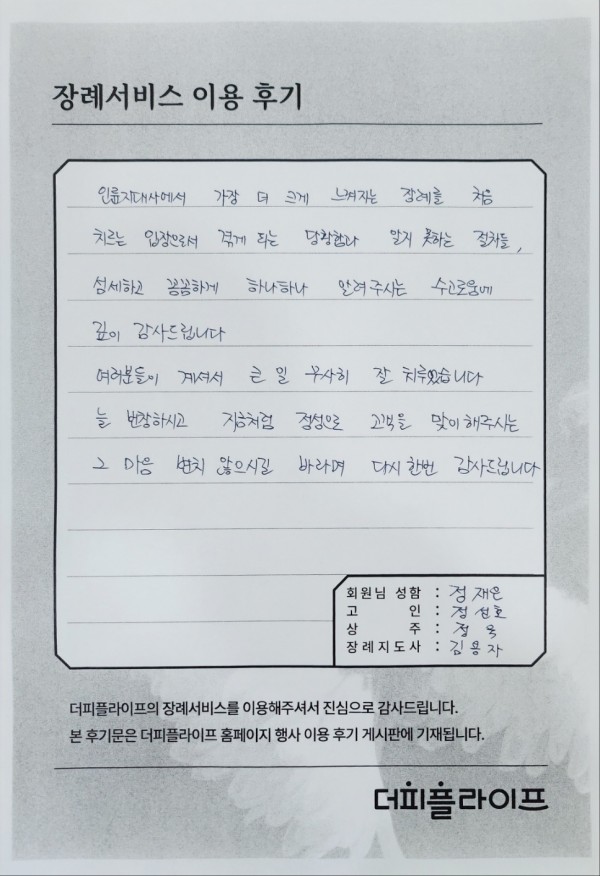 장례서비스 이용 후기
인륜지대사에서 가장 더 크게 느껴지는 장례를 처음
치르는 입장으로서 겪게 되는 당황함과 알지 못하는 절차들,
섬세하고 꼼꼼하게 하나하나 알려주시는 수고로움에
깊이 감사드립니다
여러분들이 계셔서 큰 일 무사히 잘 치루었습니다
늘 번창하시고 지금처럼 정성으로 고객을 맞이해주시는
그 마음 변치 않으시길 바라며 다시 한번 감사드립니다
회원님 성함 : 정재은
고 인 : 정선호
상 주 : 정욱
장례지도사 : 김용자
더피플라이프의 장례서비스를 이용해주셔서 진심으로 감사드립니다.
본 후기문은 더피플라이프 홈페이지 행사 이용 후기 게시판에 기재됩니다.
더피플라이프